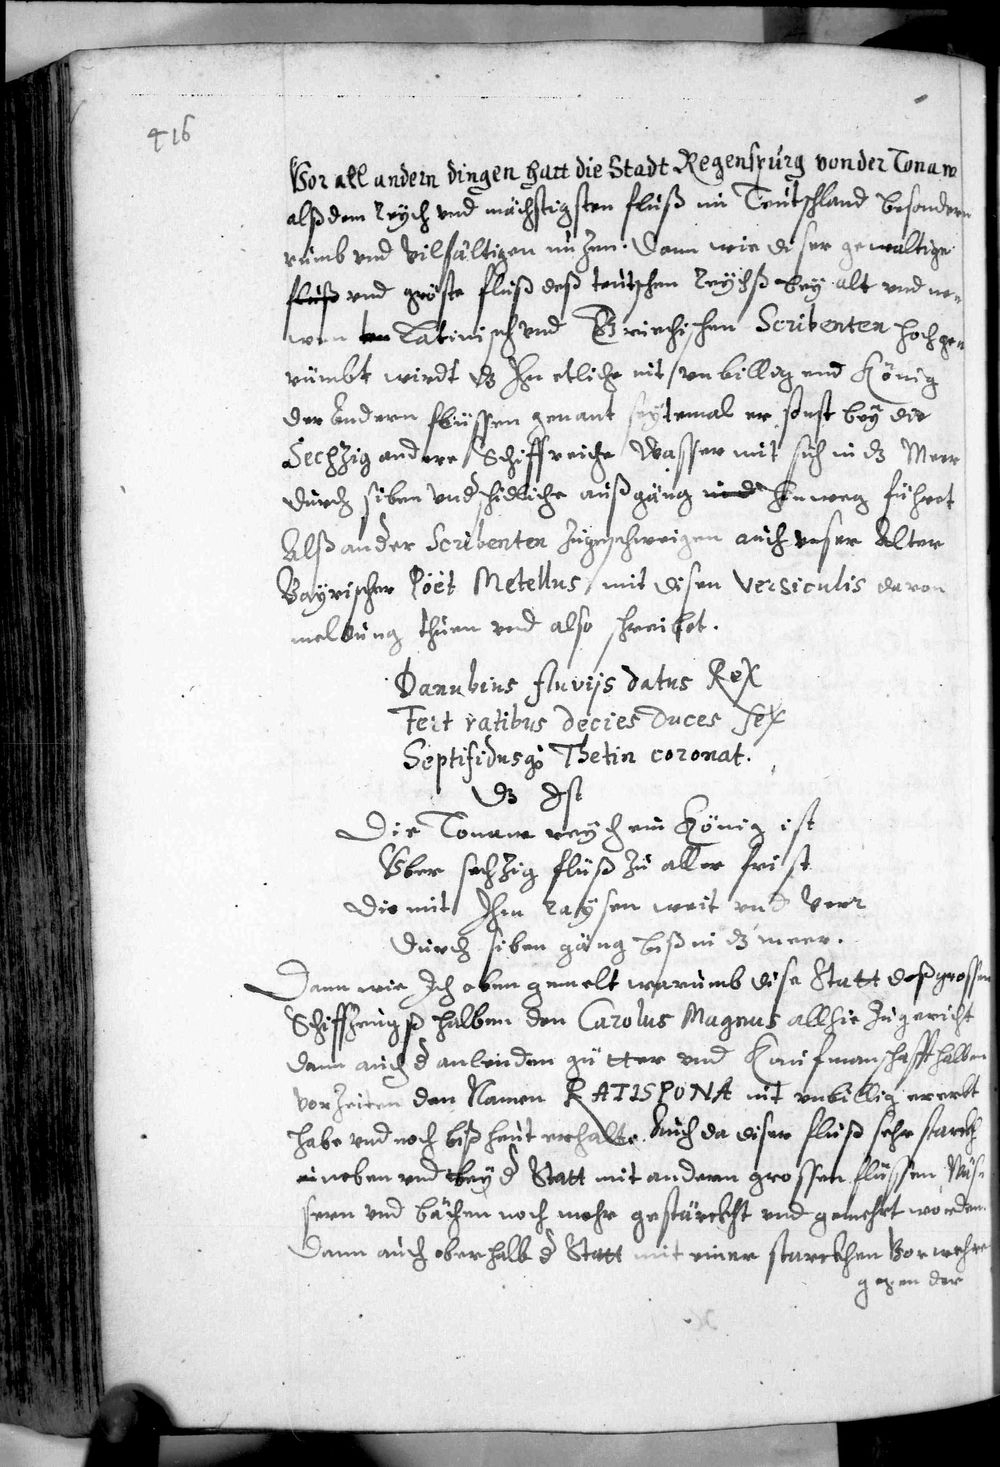 416
Vor all andern dingen hatt die Stadt Regenspurg von der Tonaw
alß dem reych vnd mächtigsten fluß in Teutschland besondern
rumb vnd vilfältigen nuzen. Dann wie diser gewaltige
fluß vnd gröste fluß deß teutschen reychß bey alt vnd ne-
wen Latinisch vnd Griechischen Scribenten hoch ge-
rümbt wirdt dz Ihn etliche nit vnbillig end König
der andern flüssen genant seytemal er sonst bey die
Sechzig andere Schiffreiche Wasser mit sich in dz Meer
durch siben vnd außgäng hinweg führet
Alß ander Scribenten zugeschweigen auch vnser Alter
Bayrischer Poët Metellus mit disen versiculis davon
meldung thuen vnd also schreibet.
Danubius fluvijs datus Rex
Fert ratibus decies duces sex
Septifidusq Thetin coronat.
dz Ist
Die Tonaw reych ein König ist
Vber sechzig fluß zu aller frist
Die mit Ihm raysen weit vnd verr
durch siben gäng biß in dz meer.
Dann wie Ich oben gemelt warumb dise Statt deß grossen
Schiffzeugß halben den Carolus Magnus allhie zugericht
dann auch d anlenden gütter vnd Kaufmanschafft halben
vor zeiten den Namen RATISPONA nit vnbillig ererbt
habe vnd noch biß heut erhalte. Auch da diser fluß sehr starckh
neben vnd bey d Statt mit andern grossen flüssen
vnd bächen noch mehr gestärckht vnd gemehrt worden.
Dann auch oberhalb d Statt mit einer starckhen Vorwehre
gegen der